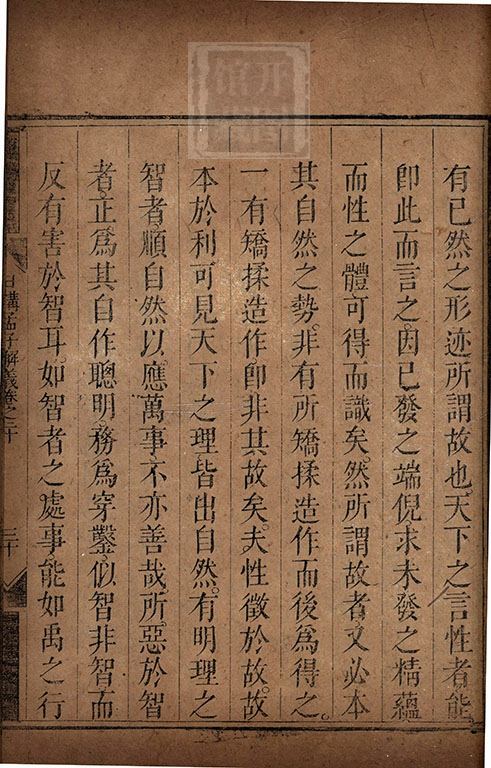 有已然之形迹所謂故也天下之言性者能
即此而言之因已發之端倪求未發之精蘊
而性之體可得而識矣然所謂故者又必本
其自然之勢非有所矯揉造作而後爲得之
一有矯揉造作即非其故矣夫性徵於故故
本於利可見天下之理皆出自然有明理之
智者順自然以應萬事不亦善哉所惡於智
者正爲其自作聰明務爲穿鑿似智非智而
反有害於智耳如智者之處事能如禹之行
日講孟子解義卷之二十
三十